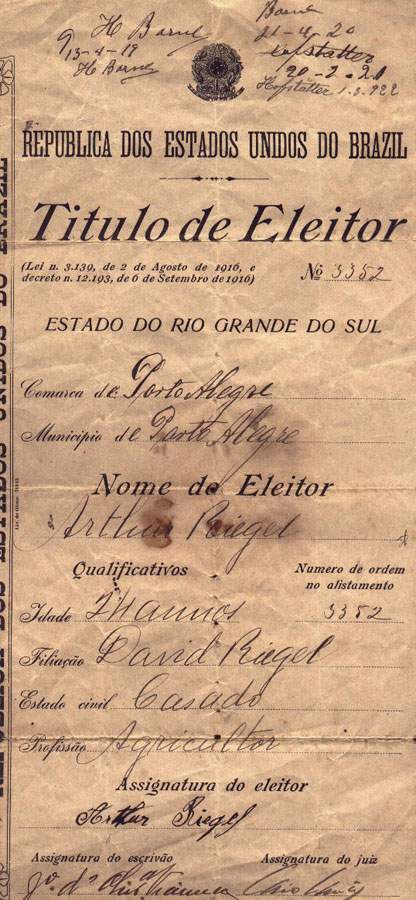 H Barne Barne
13-4-19 21-4-20
H Barne
20-2-21
Hofstätter 1.3.922
REPUBLICA DOS ESTADOS UNIDOS DO BRAZIL
Titulo de Eleitor
(Lei n. 3.139, de 2 de Agosto de 1916, e
decreto n. 12.193, de 6 de Setembro de 1916)
No 3352
ESTADO DO RIO GRANDE DO SUL
Comarca de Porto Alegre
Municipio de Porto Alegre
Nome do Eleitor
Arthur Riegel
Qualificativos
Numero de ordem
no alistamento
Idade annos 3352
Filiação David Riegel
Estado civil Casado
Profissão Agricultor
Assignatura do eleitor
Arthur Riegel
Assignatura do escrivão Assignatura do juiz